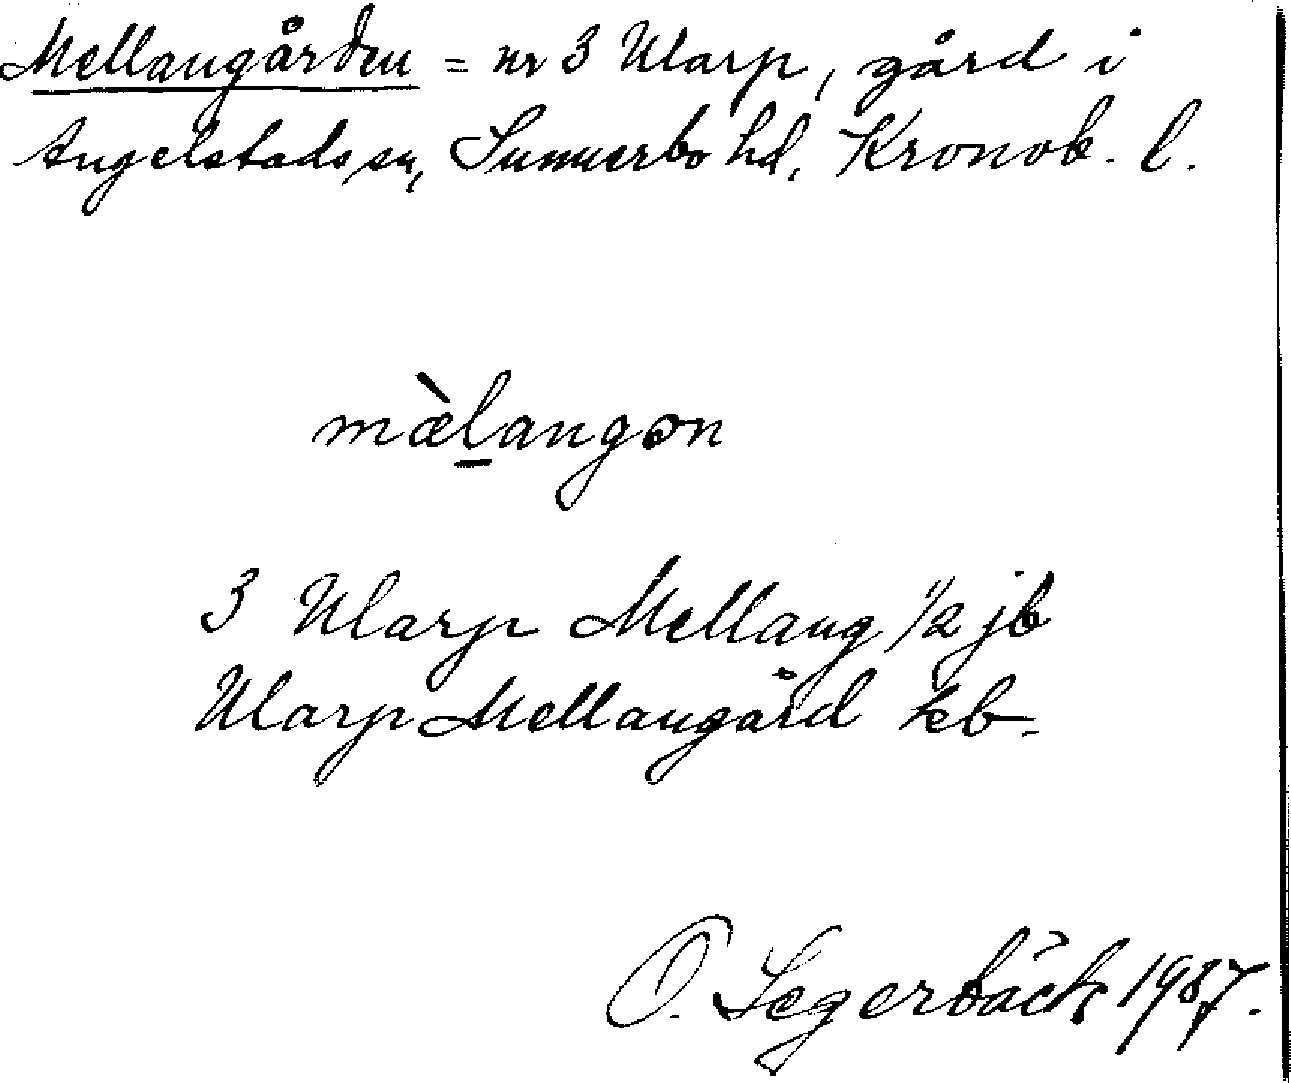 Mellangården = nr 3 Ularp, gård i
Angelstads sn, Sunnerbo hd, Kronob. l.
mæ̀l̲angɔn
3 Ularp Mellang 1/2 jb
Ularp Mellangård kb.
O. Segerbäck 1937.